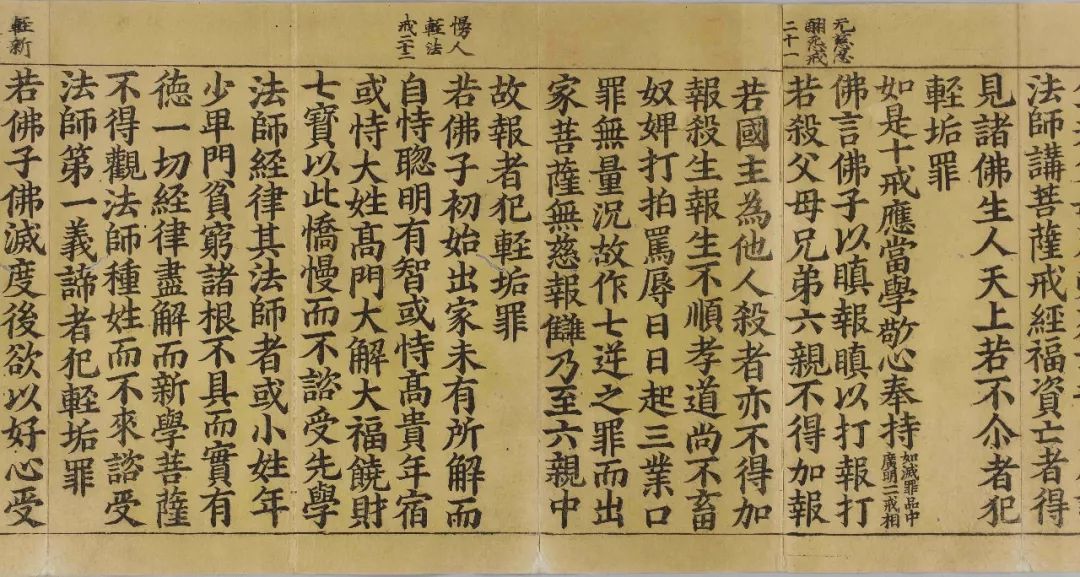 法師講菩薩戒經福資亡者得
見諸佛生人天上若不尒者犯
輕垢罪
如是十戒應當學敬心奉持
如滅罪品中
廣明一一戒相
无慈忍
酬死戒
二十一
佛言佛子以瞋報瞋以打報打
若殺父母兄弟六親不得加報
若國主為他人殺者亦不得加
報殺生報生不順孝道尚不畜
奴婢打拍罵辱日日起三業口
罪無量況故作七逆之罪而出
家菩薩無慈報讎乃至六親中
故報者犯輕垢罪
慢人
輕法
戒二十二
若佛子初始出家未有所解而
自恃聦明有智或恃高貴年宿
或恃大姓高門大解大福饒財
七寶以此憍慢而不諮受先學
法師經律其法師者或小姓年
少卑門貧窮諸根不具而實有
徳一切經律盡解而新學菩薩
不得觀法師種姓而不來諮受
法師第一義諦者犯輕垢罪
輕新
若佛子佛滅度後欲以好心受